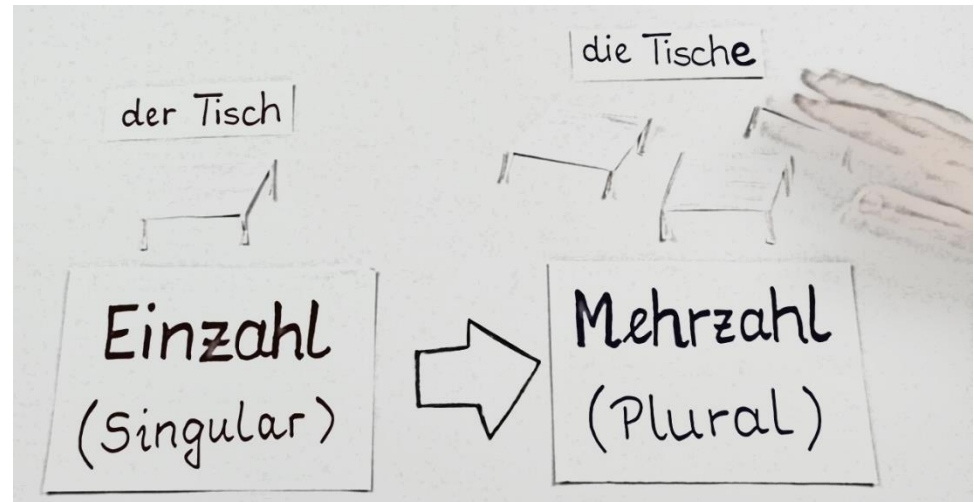 der Tisch
die Tische
Einzahl
(Singular)
Mehrzahl
(Plural)